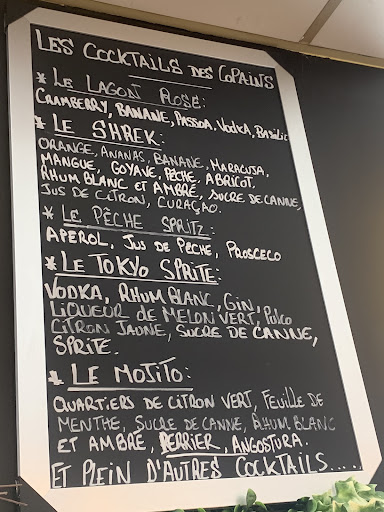 LES COCKTAILS DES COPAINS
* LE LAGON ROSE:
CRAMBERRY, BANANE, PASSOA, VODKA, BASILIC
* LE SHREK:
ORANGE, ANANAS, BANANE, MARACUJA,
MANGUE, GOYAVE, PÊCHE, ABRICOT,
RHUM BLANC ET AMBRÉ, SUCRE DE CANNE,
JUS DE CITRON, CURAÇAO.
* LE PÊCHE SPRITZ:
APEROL, JUS DE PÊCHE, PROSCECO
* LE TOKYO SPRITE:
VODKA, RHUM BLANC, GIN,
LIQUEUR DE MELON VERT, PULCO
CITRON JAUNE, SUCRE DE CANNE,
SPRITE.
* LE MOJITO:
QUARTIERS DE CITRON VERT, FEUILLE DE
MENTHE, SUCRE DE CANNE, RHUM BLANC
ET AMBRÉ, PERRIER, ANGOSTURA.
ET PLEIN D'AUTRES COCKTAILS.....